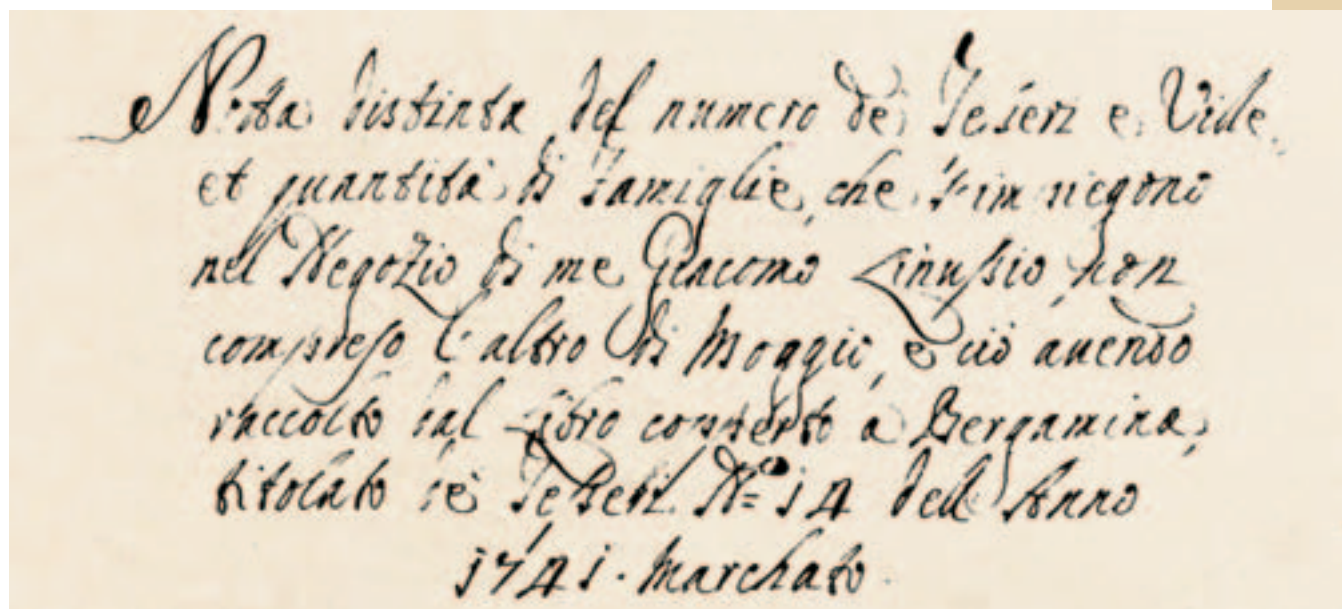 Nota distinta del numero de Teseri e Ville
et quantità di Famiglie, che s'impiegono
nel Negozio di me Giacomo Linussio, non
compreso l'altro di Moggio, e ciò avendo
raccolto dal Libro coperto a Bergamina,
titolato de Teseri N.º 14 dell Anno
1741. Marchato